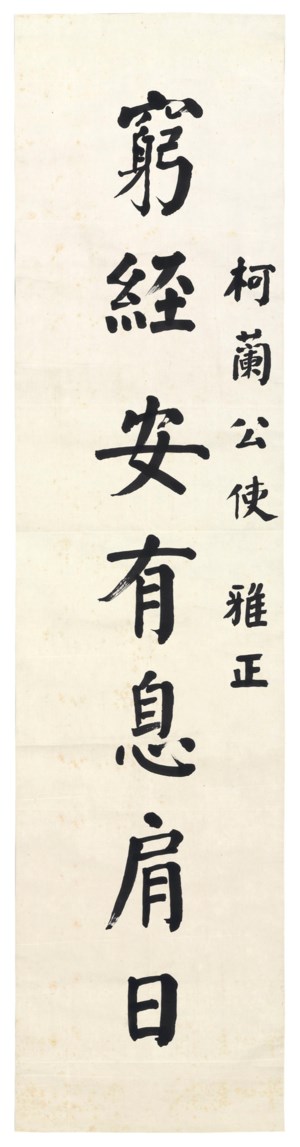 柯蘭公使 雅正
窮經安有息肩日